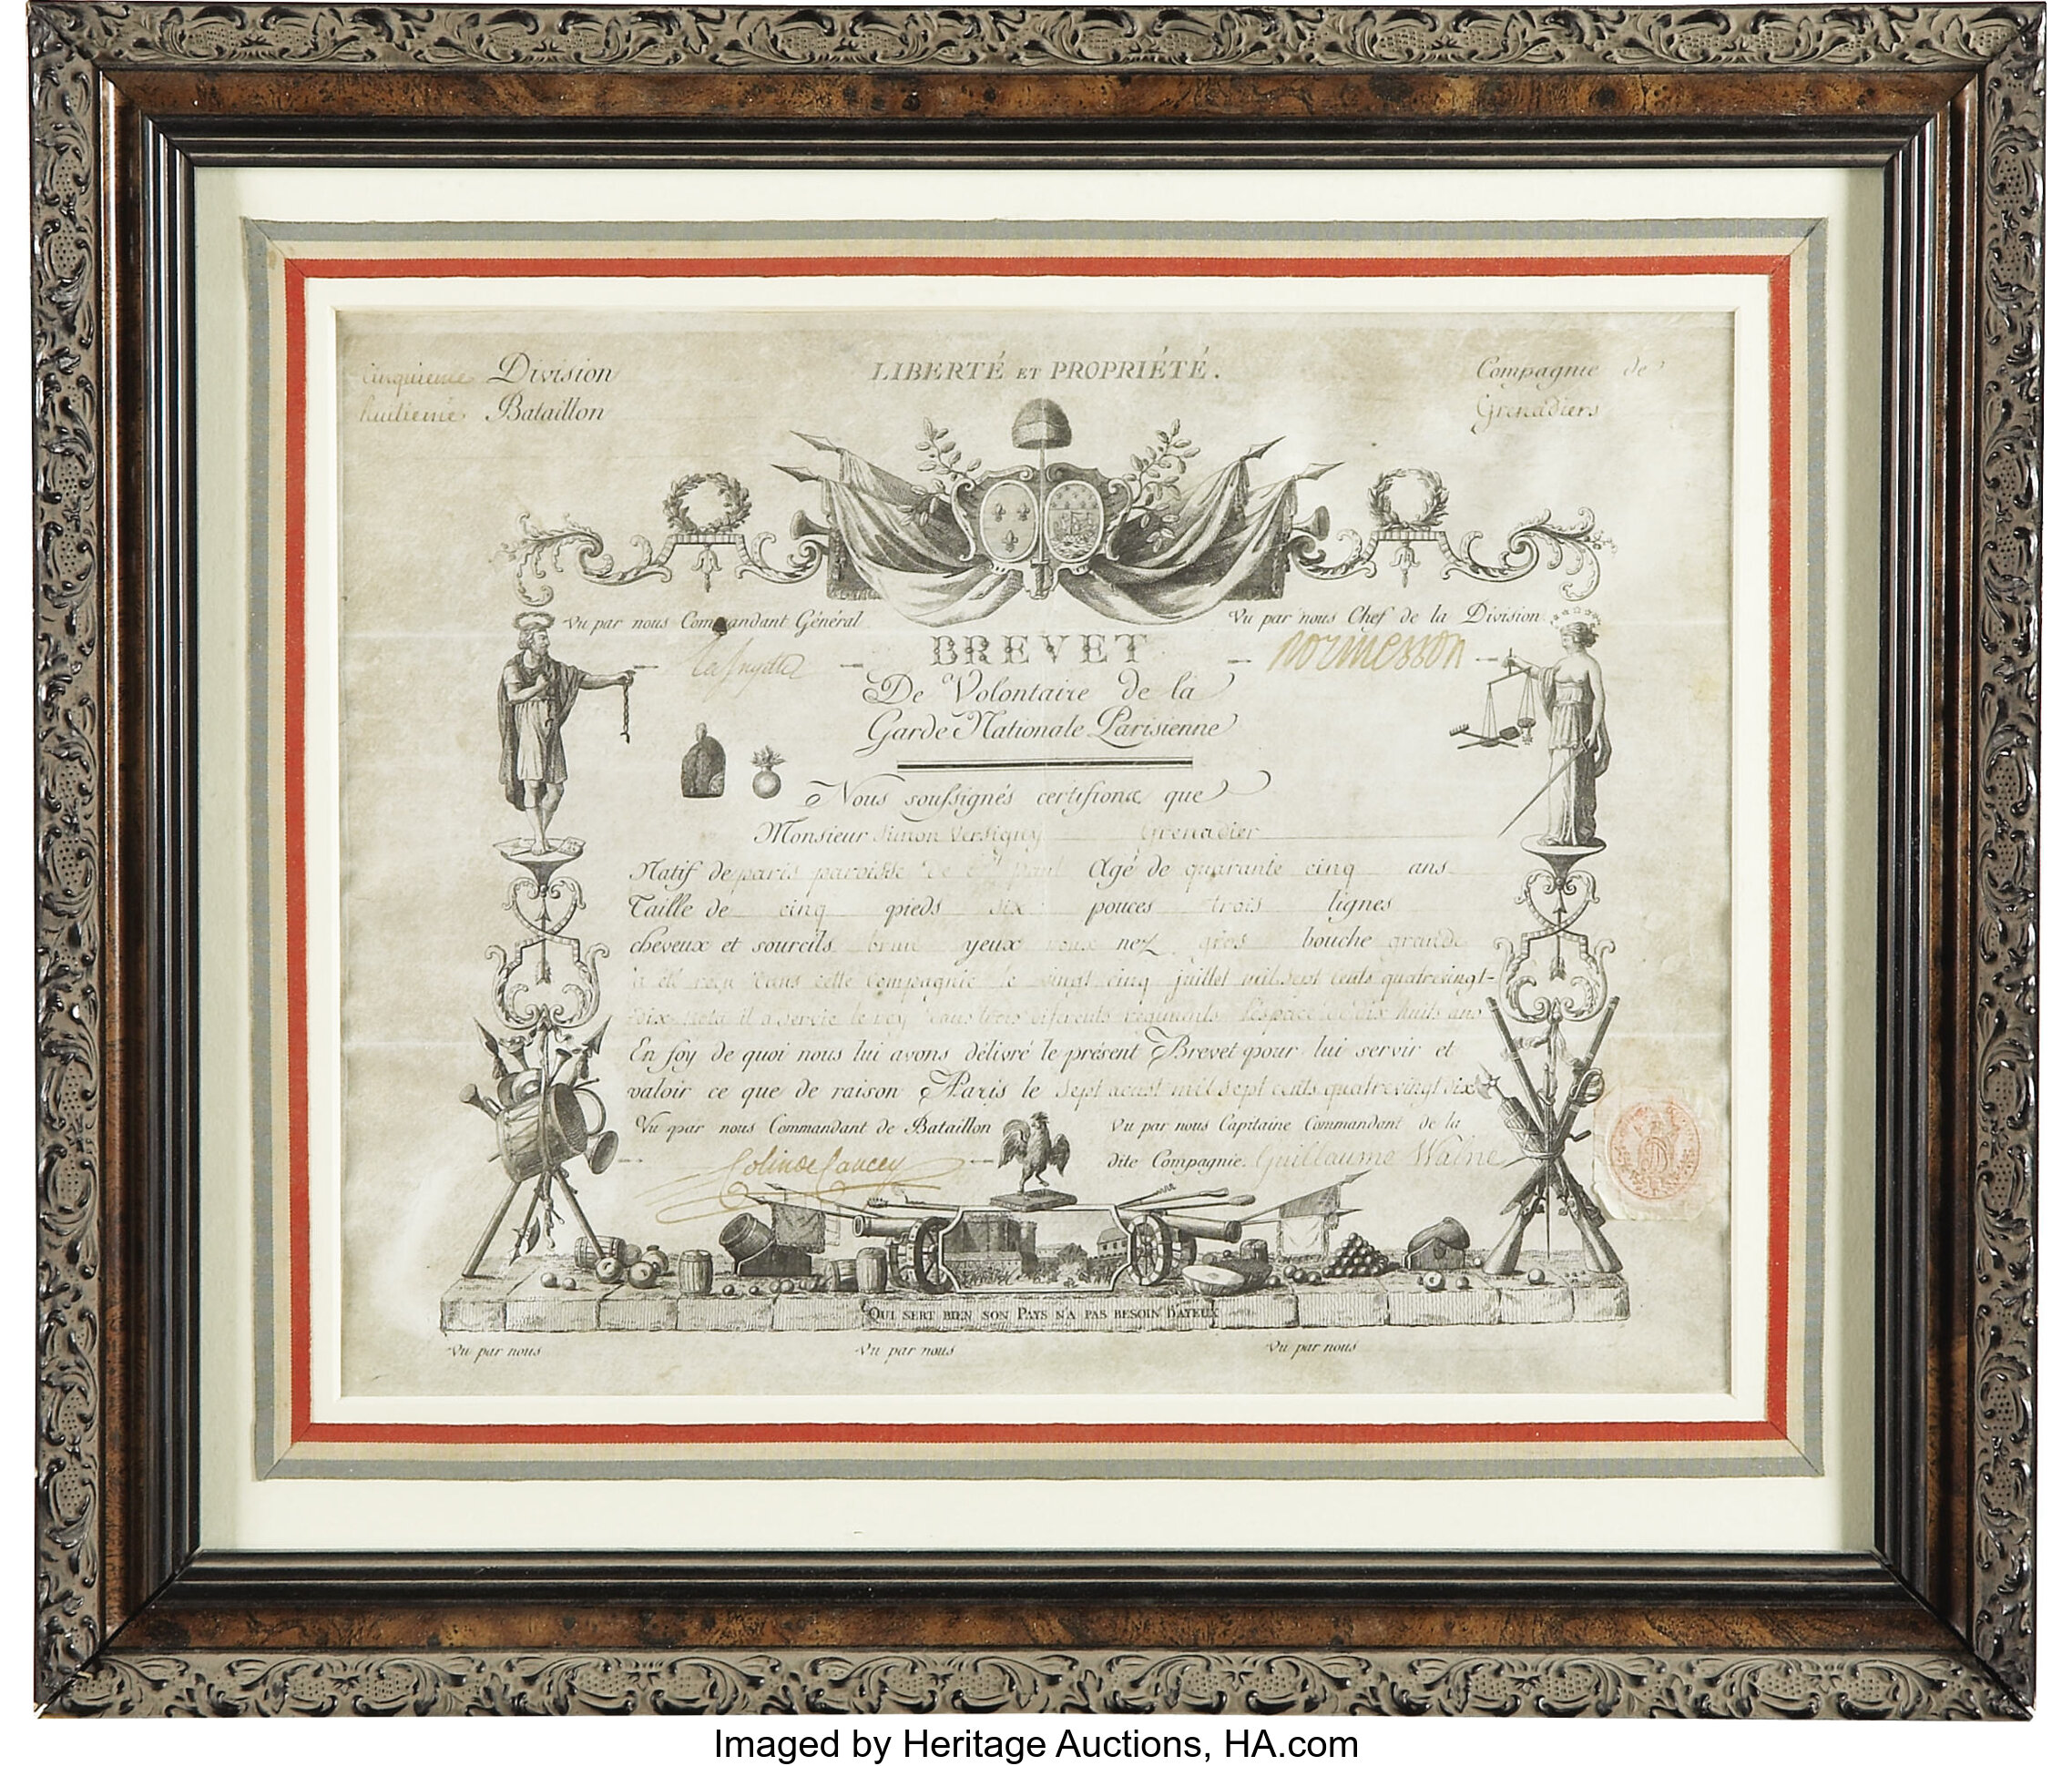 cinquieme Division
LIBERTÉ ET PROPRIÉTÉ.
Compagnie de
huitieme Bataillon
Grenadiers
Vu par nous Commandant Général
Vu par nous Chef de la Division
BREVET
De Volontaire de la
Garde Nationale Parisienne
Nous soussignés certifions que
Monsieur Simon Versigny Grenadier
Natif de paris paroisse de St paul Agé de quarante cinq ans
Taille de cinq pieds six pouces trois lignes
cheveux et sourcils brun yeux roux nez gros bouche grande
a été reçu dans cette Compagnie le vingt cinq juillet mil sept cents quatrevingt-
dix il a servie le roy dans trois diferents regiments l'espace de dix huits ans
En foy de quoi nous lui avons délivré le présent Brevet pour lui servir et
valoir ce que de raison Paris le sept aoust mil sept cents quatrevingt dix
Vu par nous Commandant de Bataillon
Vu par nous Capitaine Commandant de la
dite Compagnie. Guillaume Walne
QUI SERT BIEN SON PAYS N'A PAS BESOIN D'AYEUX
Vu par nous
Vu par nous
Vu par nous
Imaged by Heritage Auctions, HA.com